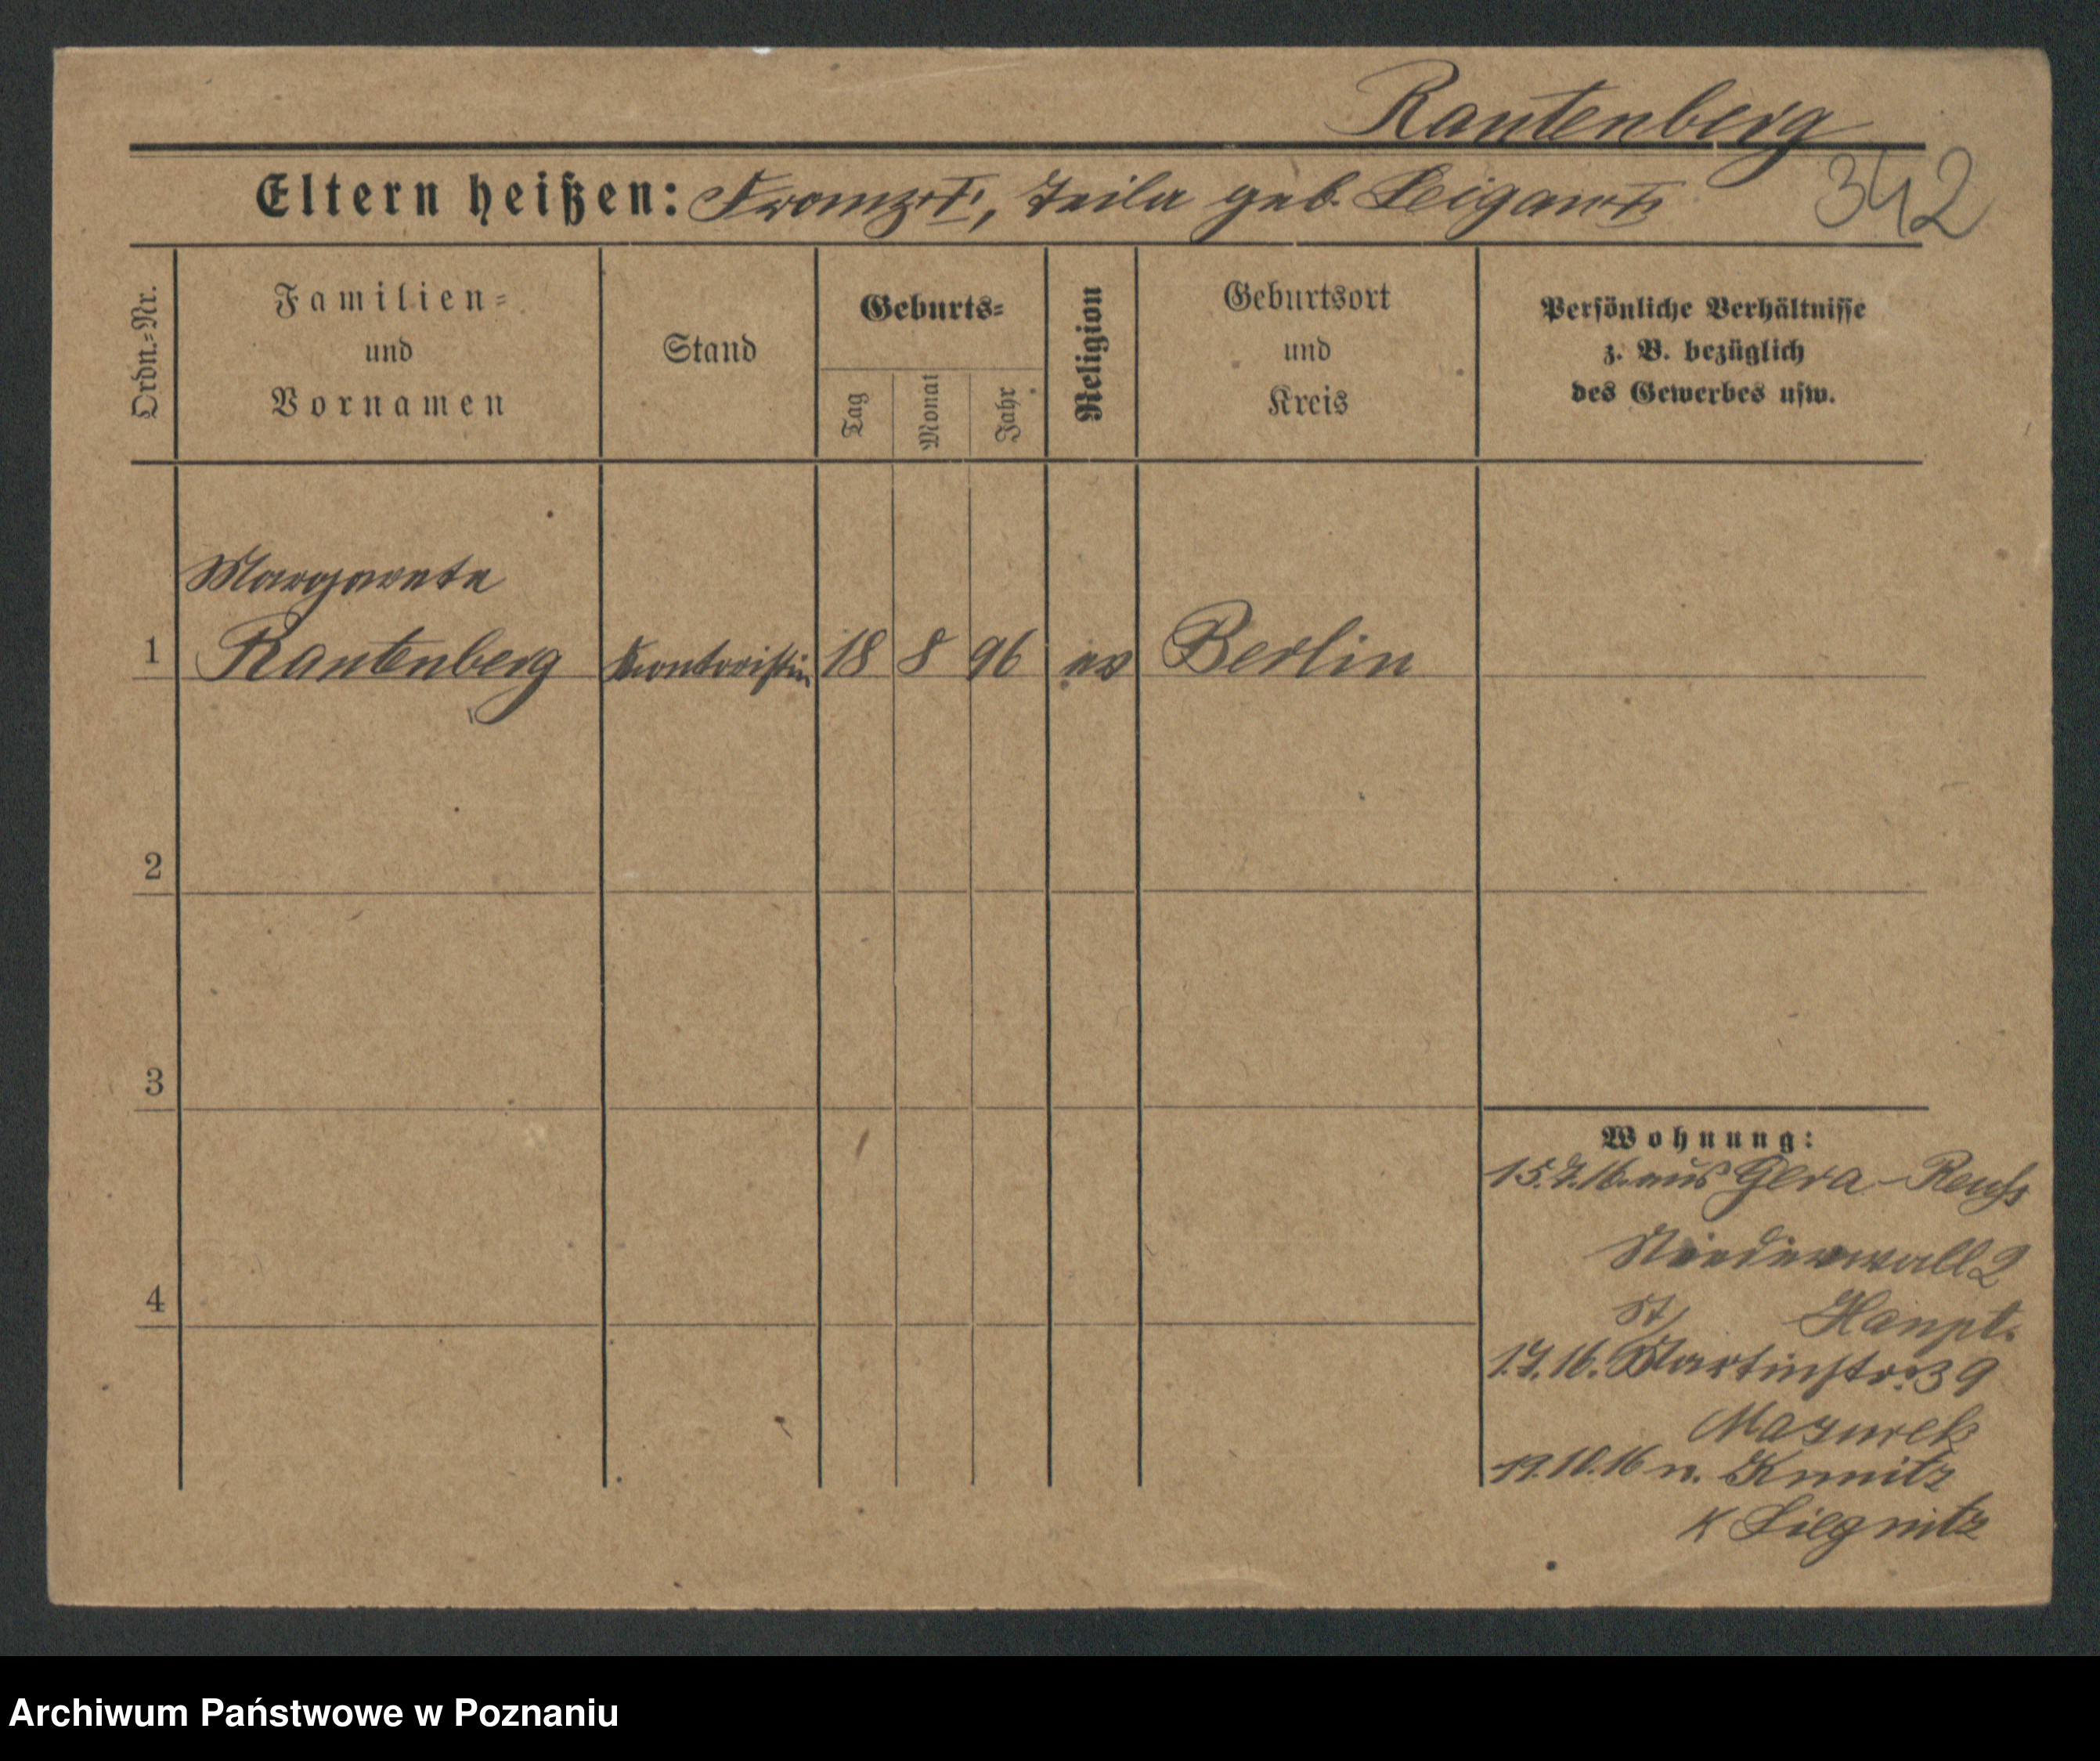 Rautenberg
342
Eltern heißen: Franz, geb.
Ordn.=Nr.
Familien=
und
Vornamen
Stand
Geburts=
Tag
Monat
Jahr
Religion
Geburtsort
und
Kreis
Persönliche Verhältnisse
z. B. bezüglich
des Gewerbes usw.
Margarete
1 Rautenberg Kontoristin 18 8 96 ev Berlin
2
3
4
Wohnung:
15.7.16. aus Gera-Reuß
Niederwall 2
Haupt.
St
Martinstr. 39
Mazurek
19.10.16 n. Kunitz
K Liegnitz
Archiwum Państwowe w Poznaniu